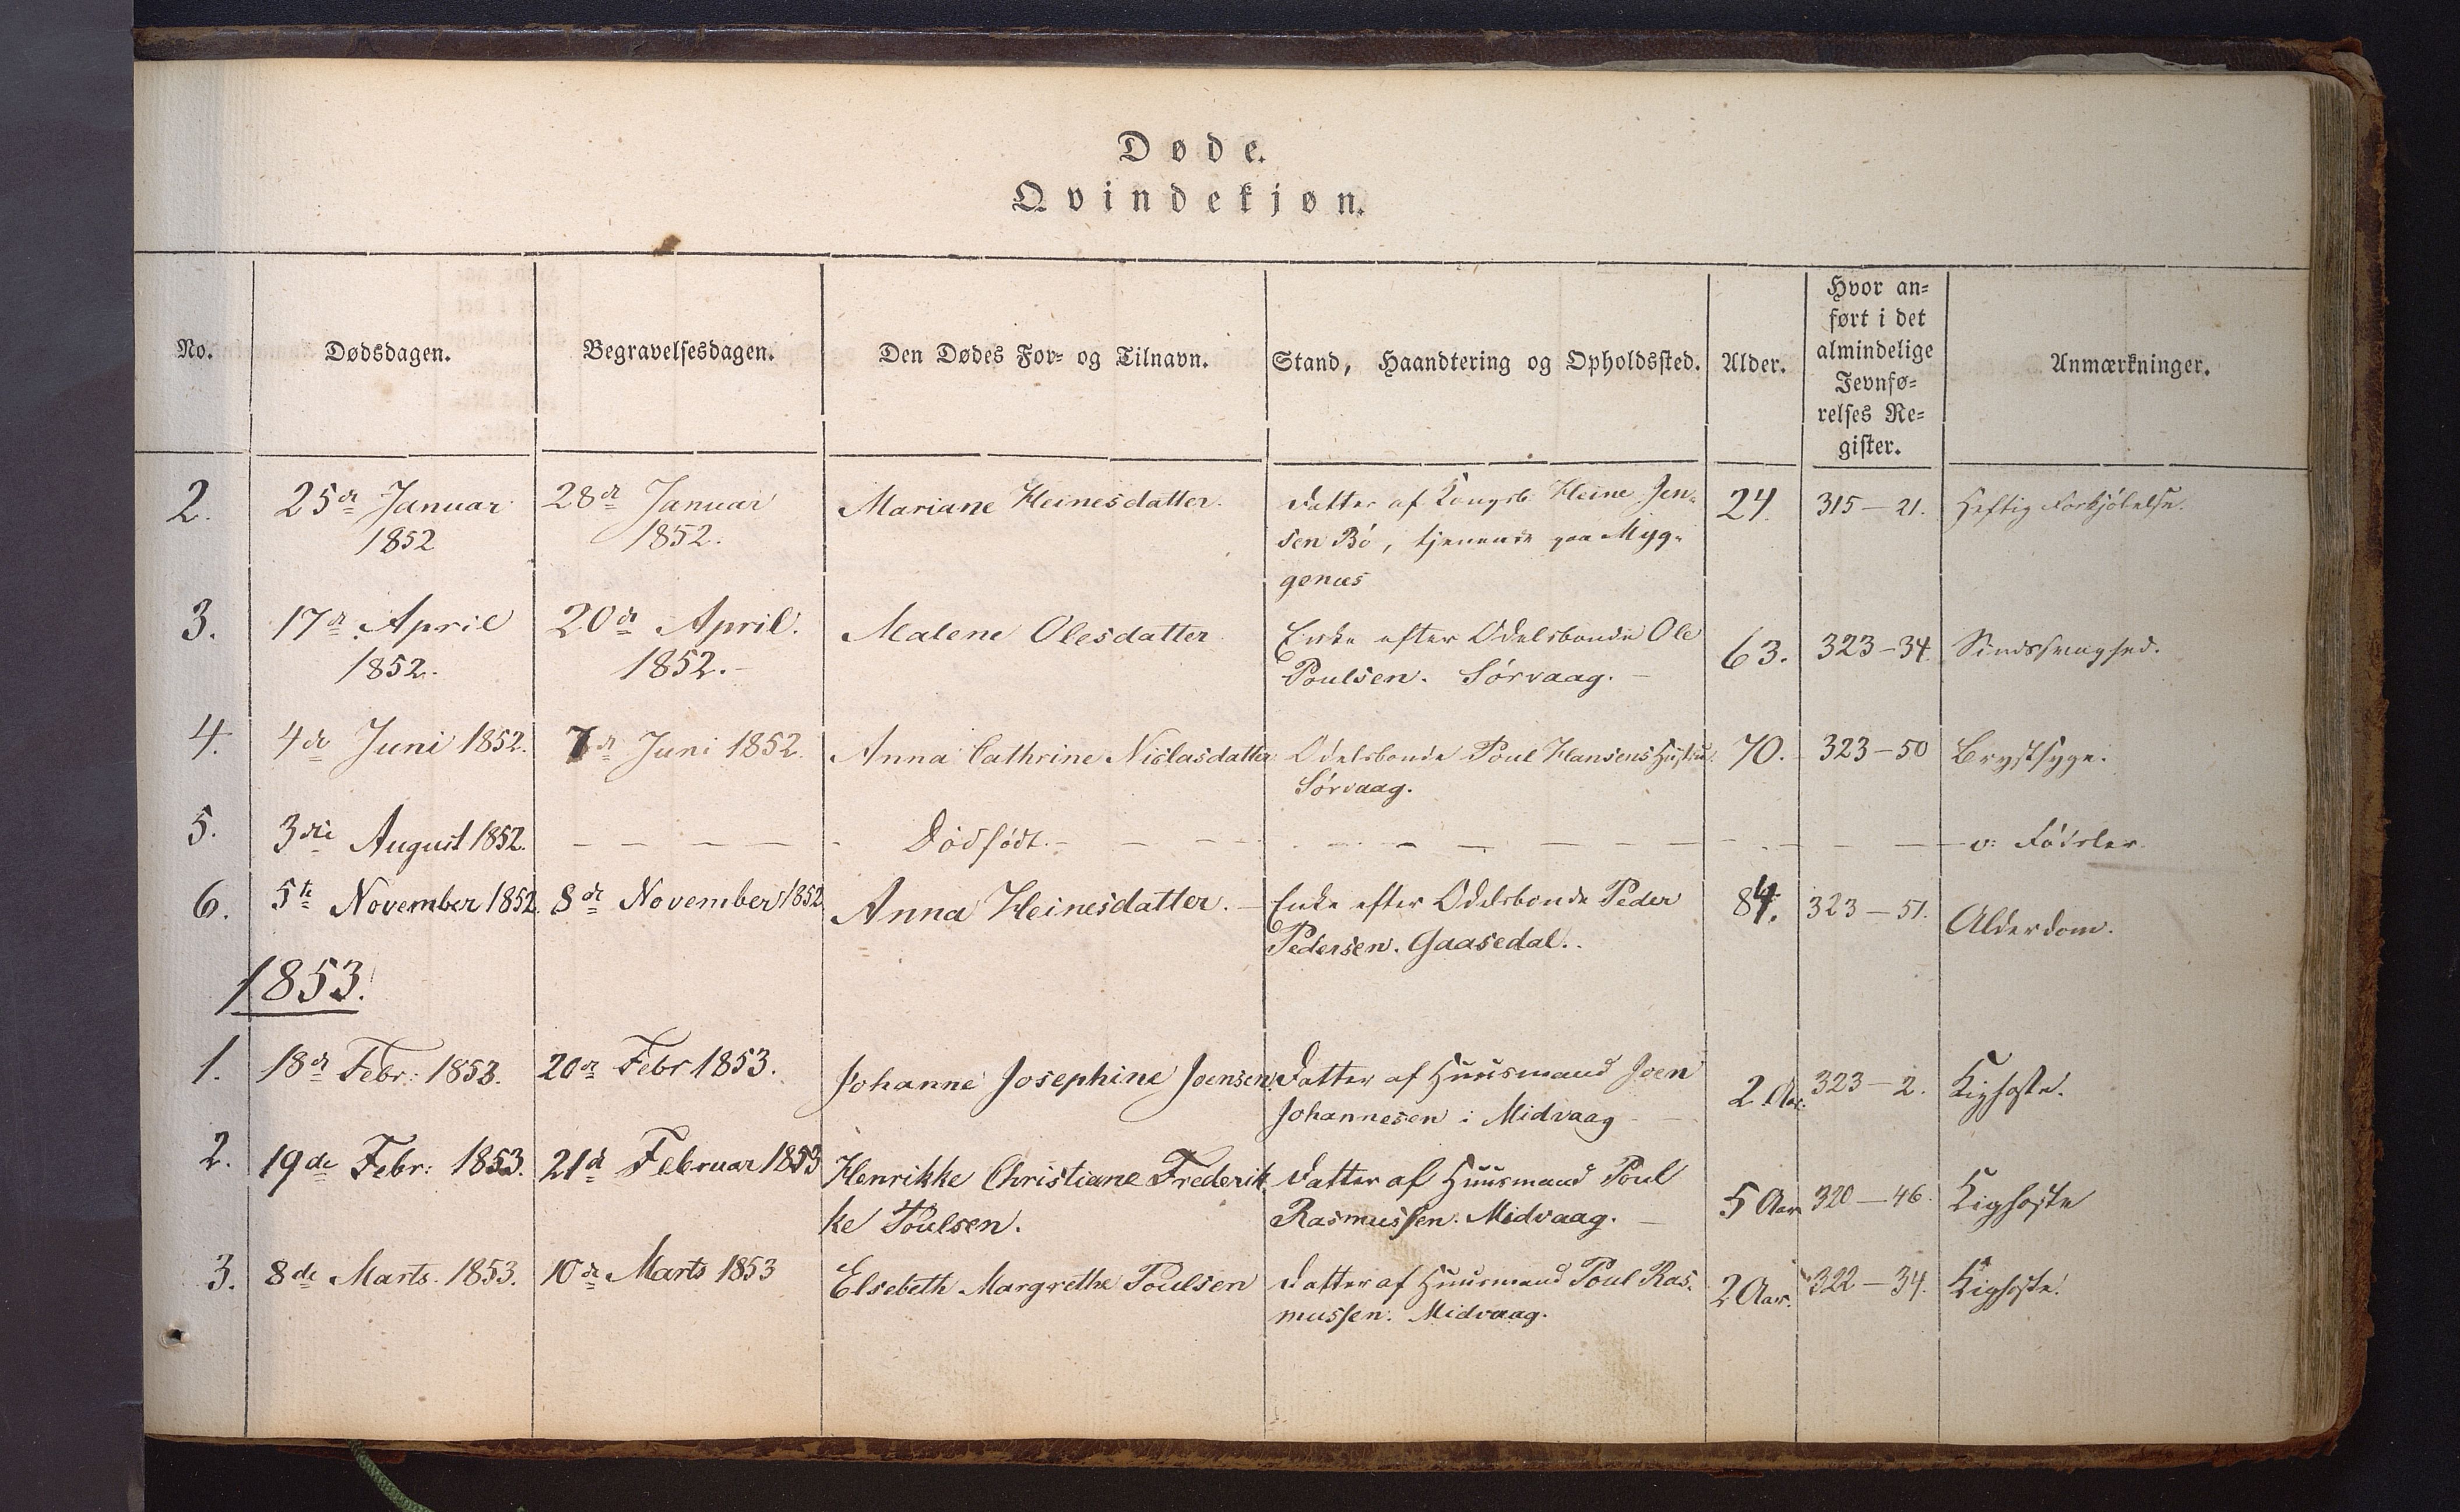 Døde.
Qvindekjøn.
No. Dødsdagen. Begravelsesdagen. Den Dødes For- og Tilnavn. Stand, Haandtering og Opholdssted. Alder. Hvor an-
ført i det
almindelige
Jevnfø-
relses Re-
gister. Anmærkninger.
2. 25de Januar 28de Januar Mariane Heinesdatter. Datter af Kongsb. Heine Jen- 24. 315 — 21. Heftig Forkjölelse.
1852 1852. sen Bö, tjenende paa Myg-
genæs
3. 17de April 20de April. Malene Olesdatter Enke efter Odelsbonde Ole 63. 323 — 34. Sindssvaghed.
1852. 1852. — Poulsen. Sörvaag. —
4. 4de Juni 1852. 7de Juni 1852. Anna Cathrine Niclasdatter Odelsbonde Poul Hansens Hustru. 70. 323 — 50 Brystsyge.
Sörvaag.
5. 3die August 1852. — — — — Dödfödt. — — — — — v: Födsler.
6. 5te November 1852. 8de November 1852 Anna Heinesdatter. — Enke efter Odelsbonde Peder 84. 323 — 51. Alderdom.
Pedersen. Gaasedal.
1853.
1. 18de Febr: 1853. 20de Febr 1853. Johanne Josephine Joensen. Datter af Huusmand Joen 2 Aar. 323 — 2. Kighoste.
Johannesen i Midvaag —
2. 19de Febr: 1853. 21de Februar 1853 Henrikke Christiane Frederik- Datter af Huusmand Poul 5 Aar 320 — 46. Kighoste
ke Poulsen. Rasmussen. Midvaag. —
3. 8de Marts. 1853. 10de Marts 1853 Elsebeth Margrethe Poulsen Datter af Huusmand Poul Ras- 2 Aar. 322 — 34. Kighoste.
mussen. Midvaag.